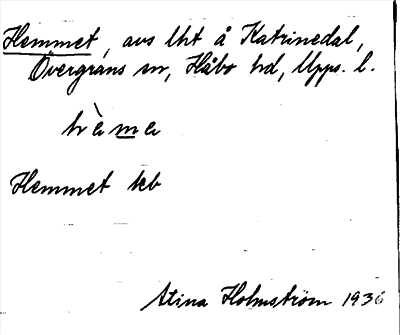 Hemmet, avs lht å Katrinedal,
Övergrans sn, Håbo hd, Upps. l.
hèma
Hemmet kb
Stina Holmström 1936